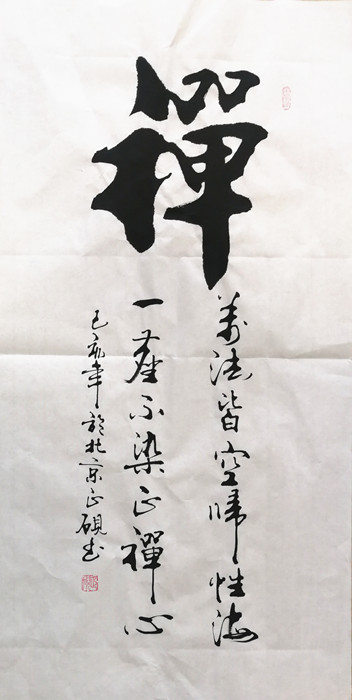 禪
萬法皆空歸性海
一塵不染正禪心
己亥年於北京正硯书